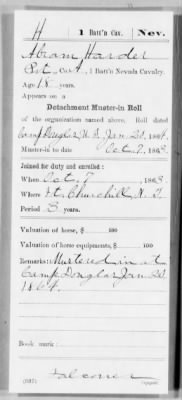 H 1 Batt'n Cav. Nev.
Abram Harder
Pvt., Co. A, 1 Batt'n Nevada Cavalry.
Age 18 years.
Appears on a
Detachment Muster-in Roll
of the organization named above. Roll dated
Camp Douglas U. T., Jan. 20, 1864.
Muster-in to date Oct. 7, 1863
Joined for duty and enrolled:
When Oct. 7, 1863
Where Ft. Churchill, N. T.
Period 3 years.
Valuation of horse, $ 100
Valuation of horse equipments, $ 100
Remarks: Mustered in at
Camp Douglas Jan. 20
1864.
Book mark:
Falconer
Copyist.